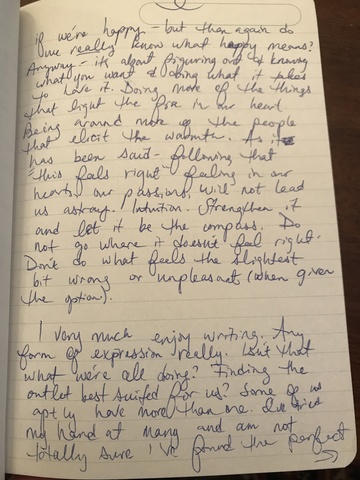 if we're happy - but then again do
we really know what happy means?
Anyway - it's about figuring out & knowing
what you want & doing what it takes
to love it. Doing more of the things
that light the fire in our heart.
Being around more of the people
that elicit the warmth. As it
has been said - following that
"this feels right" feeling in our
hearts, our passions, will not lead
us astray. Intuition. Strengthen it
and let it be the compass. Do
not go where it doesn't feel right.
Don't do what feels the slightest
bit wrong or unpleasant (when given
the option).
I very much enjoy writing. Any
form of expression really. Isn't that
what we're all doing? Finding the
outlet best suited for us? Some of us
aptly have more than one. I've tried
my hand at many and am not
totally sure I've found the perfect